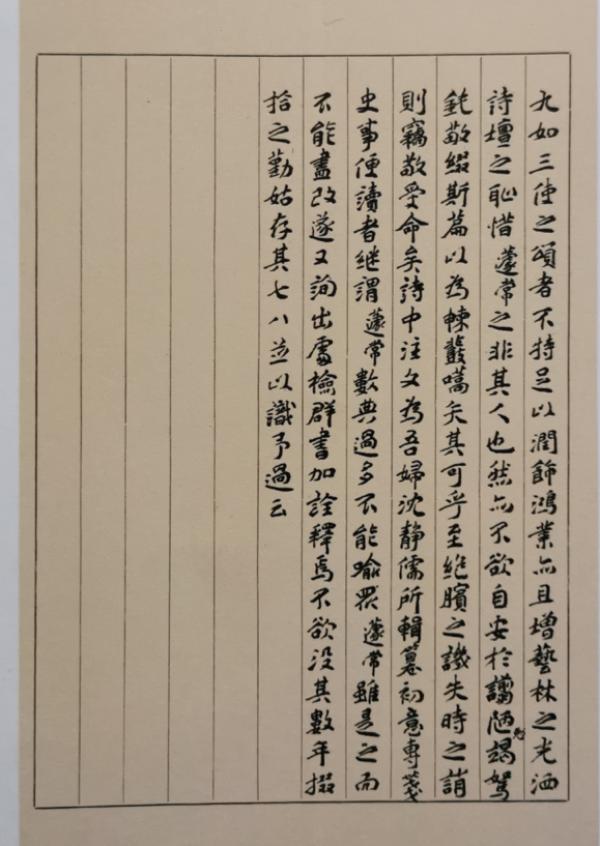 九如三使之頌者不特足以潤飾鴻業亦且增藝林之光洒
詩壇之恥惜蘧常之非其人也然亦不欲自安於譾陋勉竭駑
鈍敬綴斯篇以為嚆矢其可乎至絕臏之譏失時之誚
則竊敬受命矣詩中注文為吾婦沈靜儒所輯纂初意專箋
史事便讀者繼謂蘧常數典過多不能喻眾蘧常雖是之而
不能盡改遂又詢出處檢群書加詮釋焉不欲沒其數年掇
拾之勤姑存其七八並以識予過云